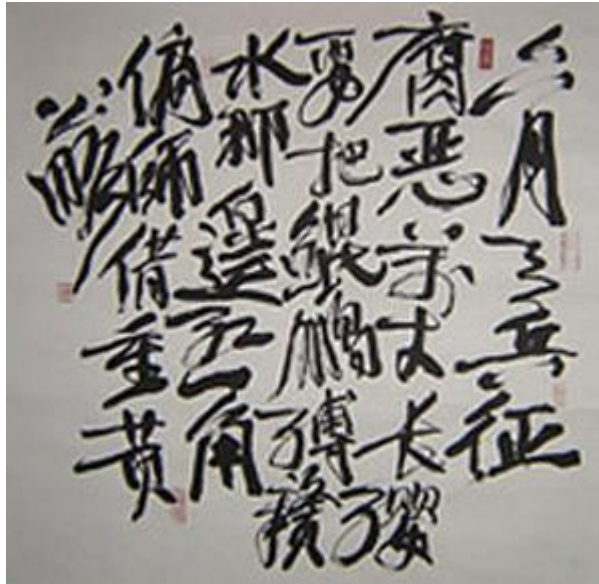 六月天兵征
腐恶萬丈长缨
要把鲲鹏缚赣
水那邊红一角
偏师借重黄
公略